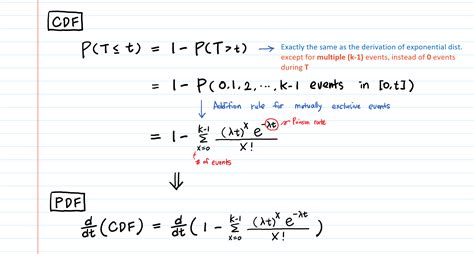 CDF
P(T ≤ t) = 1 - P(T > t) → Exactly the same as the derivation of exponential dist.
except for multiple (k-1) events, instead of 0 events
during T
= 1 - P( 0, 1, 2, ..., k-1 events in [0,t])
↓ Addition rule for mutually exclusive events
= 1 - Σ_{x=0}^{k-1} (λt)^x e^{-λt} / x! → Poisson rate
# of events
⇓
PDF
d/dt (CDF) = d/dt ( 1 - Σ_{x=0}^{k-1} (λt)^x e^{-λt} / x! )